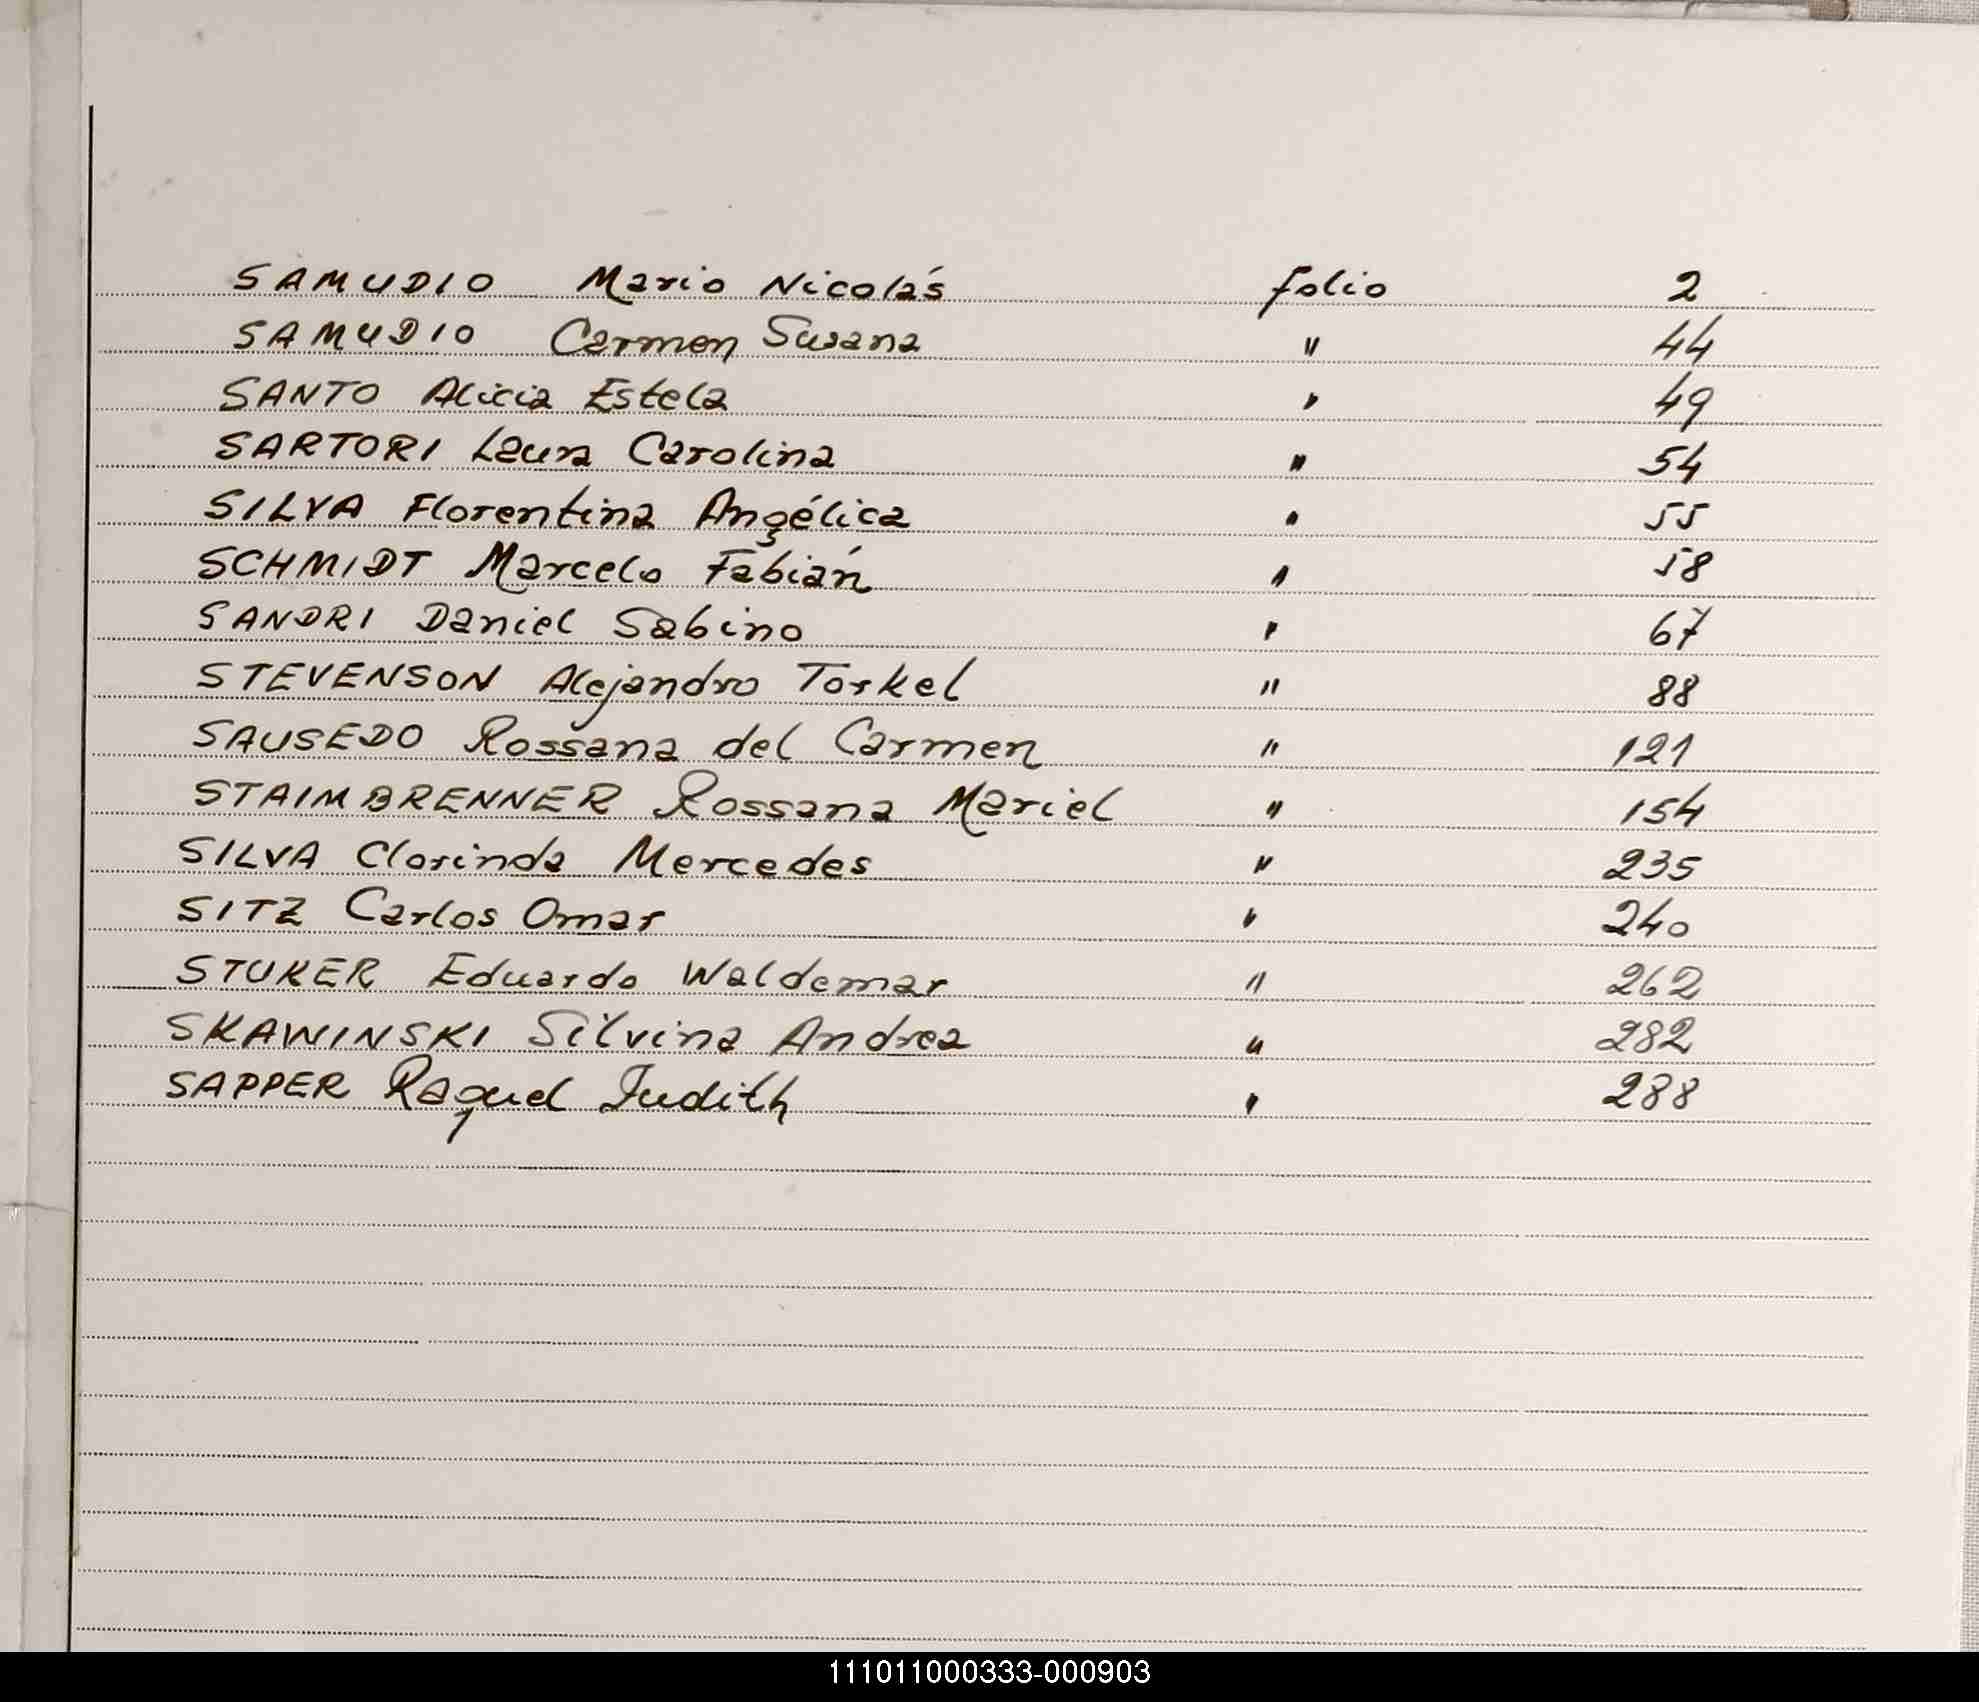 SAMUDIO Mario Nicolás folio 2
SAMUDIO Carmen Susana " 44
SANTO Alicia Estela " 49
SARTORI Laura Carolina " 54
SILVA Florentina Angélica " 55
SCHMIDT Marcelo Fabián " 58
SANDRI Daniel Sabino " 67
STEVENSON Alejandro Torkel " 88
SAUSEDO Rossana del Carmen " 121
STAIMBRENNER Rossana Mariel " 154
SILVA Clorinda Mercedes " 235
SITZ Carlos Omar " 240
STUKER Eduardo Waldemar " 262
SKAWINSKI Silvina Andrea " 282
SAPPER Raquel Judith " 288
111011000333-000903